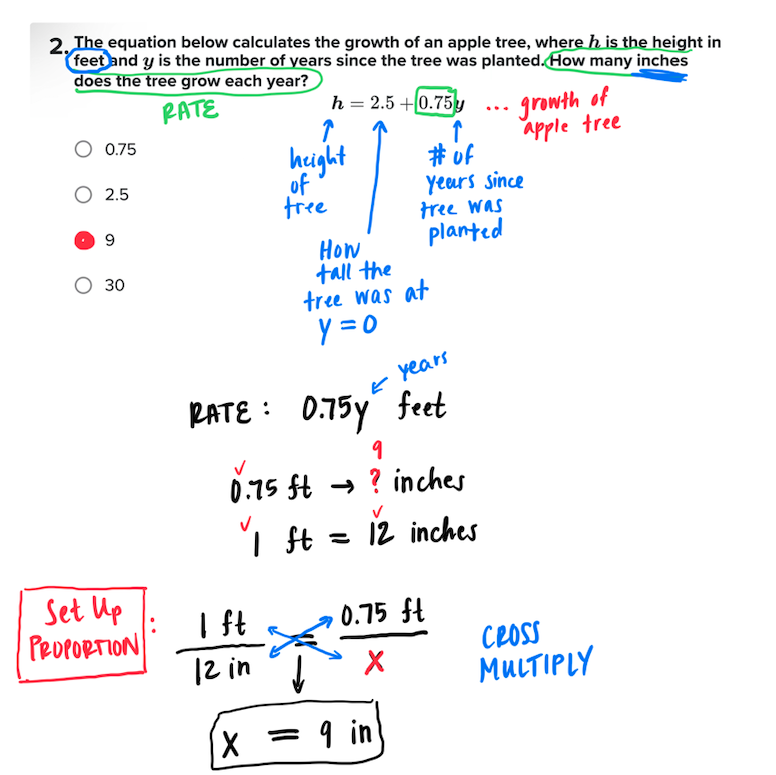 2. The equation below calculates the growth of an apple tree, where h is the height in
feet and y is the number of years since the tree was planted. How many inches
does the tree grow each year?
RATE
h = 2.5 + 0.75y
... growth of
apple tree
0.75
2.5
9
30
height
of
tree
# of
years since
tree was
planted
How
tall the
tree was at
y = 0
years
RATE : 0.75y feet
9
0.75 ft → ? inches
1 ft = 12 inches
Set Up
PROPORTION :
1 ft = 0.75 ft
12 in x
CROSS
MULTIPLY
x = 9 in